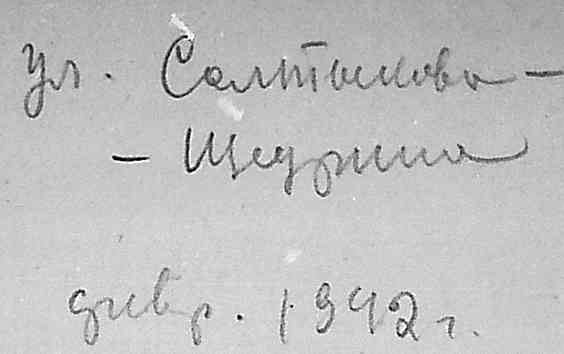 ул. Салтыкова -
- Щедрина
1942 г.